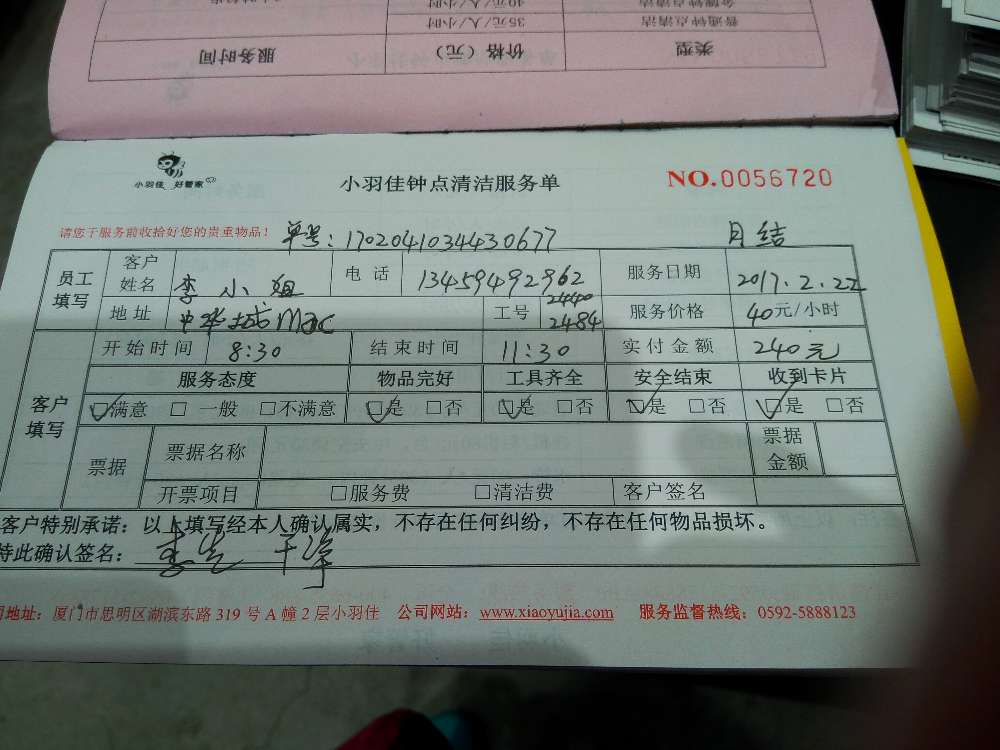 金牌钟点清洁 40元/人/小时
普通钟点清洁 35元/人/小时
类型 价格（元） 服务时间
小羽佳 好管家
小羽佳钟点清洁服务单
NO.0056720
请您于服务前收拾好您的贵重物品！ 单号：1702041034430677 月结
员工填写 客户姓名 李小姐 电话 13459492962 服务日期 2017.2.22
地址 中华城Mac 工号 2440 2484 服务价格 40元/小时
客户填写 开始时间 8:30 结束时间 11:30 实付金额 240元
服务态度 物品完好 工具齐全 安全结束 收到卡片
☑满意 □一般 □不满意 ☑是 □否 ☑是 □否 ☑是 □否 ☑是 □否
票据 票据名称 票据金额
开票项目 □服务费 □清洁费 客户签名
客户特别承诺：以上填写经本人确认属实，不存在任何纠纷，不存在任何物品损坏。
特此确认签名：
司地址：厦门市思明区湖滨东路 319 号 A 幢 2 层小羽佳 公司网站：www.xiaoyujia.com 服务监督热线：0592-5888123